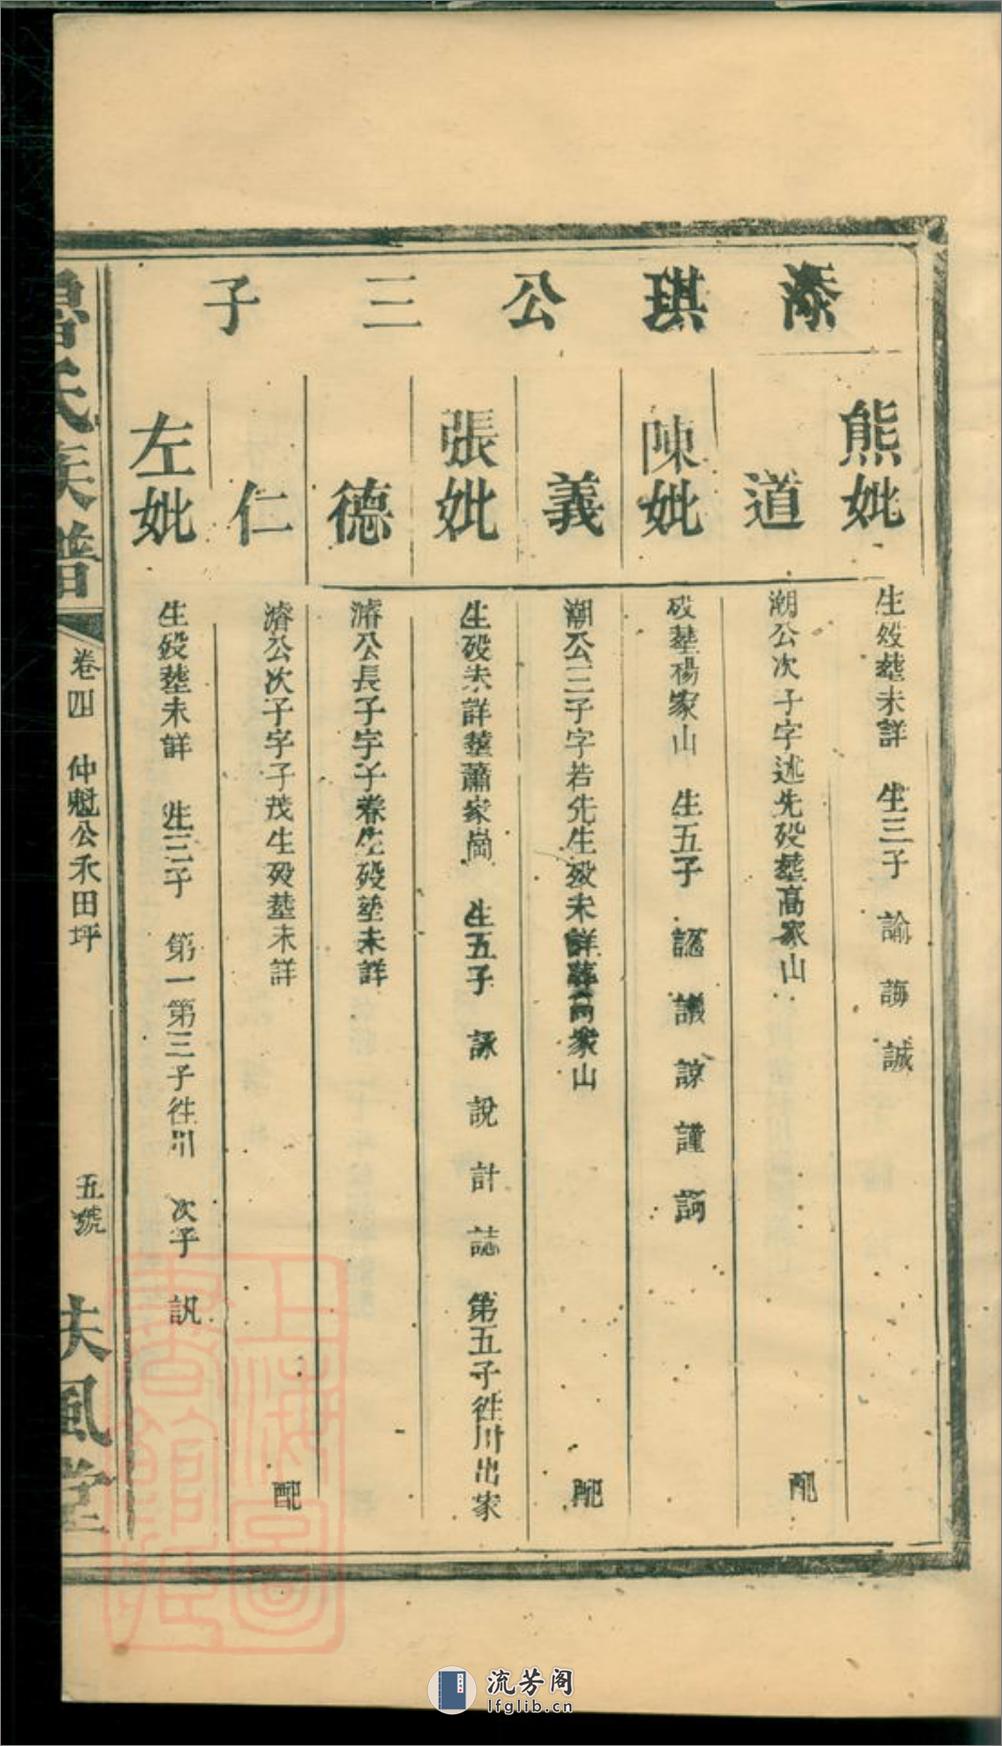 添琪公三子
熊妣
生殁塟未詳 生三子 諭 誨 誠
道
潮公次子字述先殁塟高家山 配
陳妣
殁塟楊家山 生五子 認 議 諒 謹 訶
義
潮公三子字若先生殁未詳塟高家山 配
張妣
生殁未詳塟蕭家崗 生五子 詠 說 計 誌 第五子徃川出家
德
濬公長子字子養生殁塟未詳
仁
濬公次子字子茂生殁塟未詳 配
左妣
生殁塟未詳 生三子 第一第三子徃川 次子 訊
魯氏族譜
卷四 仲魁公禾田坪
五號
扶風堂
上海圖書館藏
流芳阁
lfglib.cn